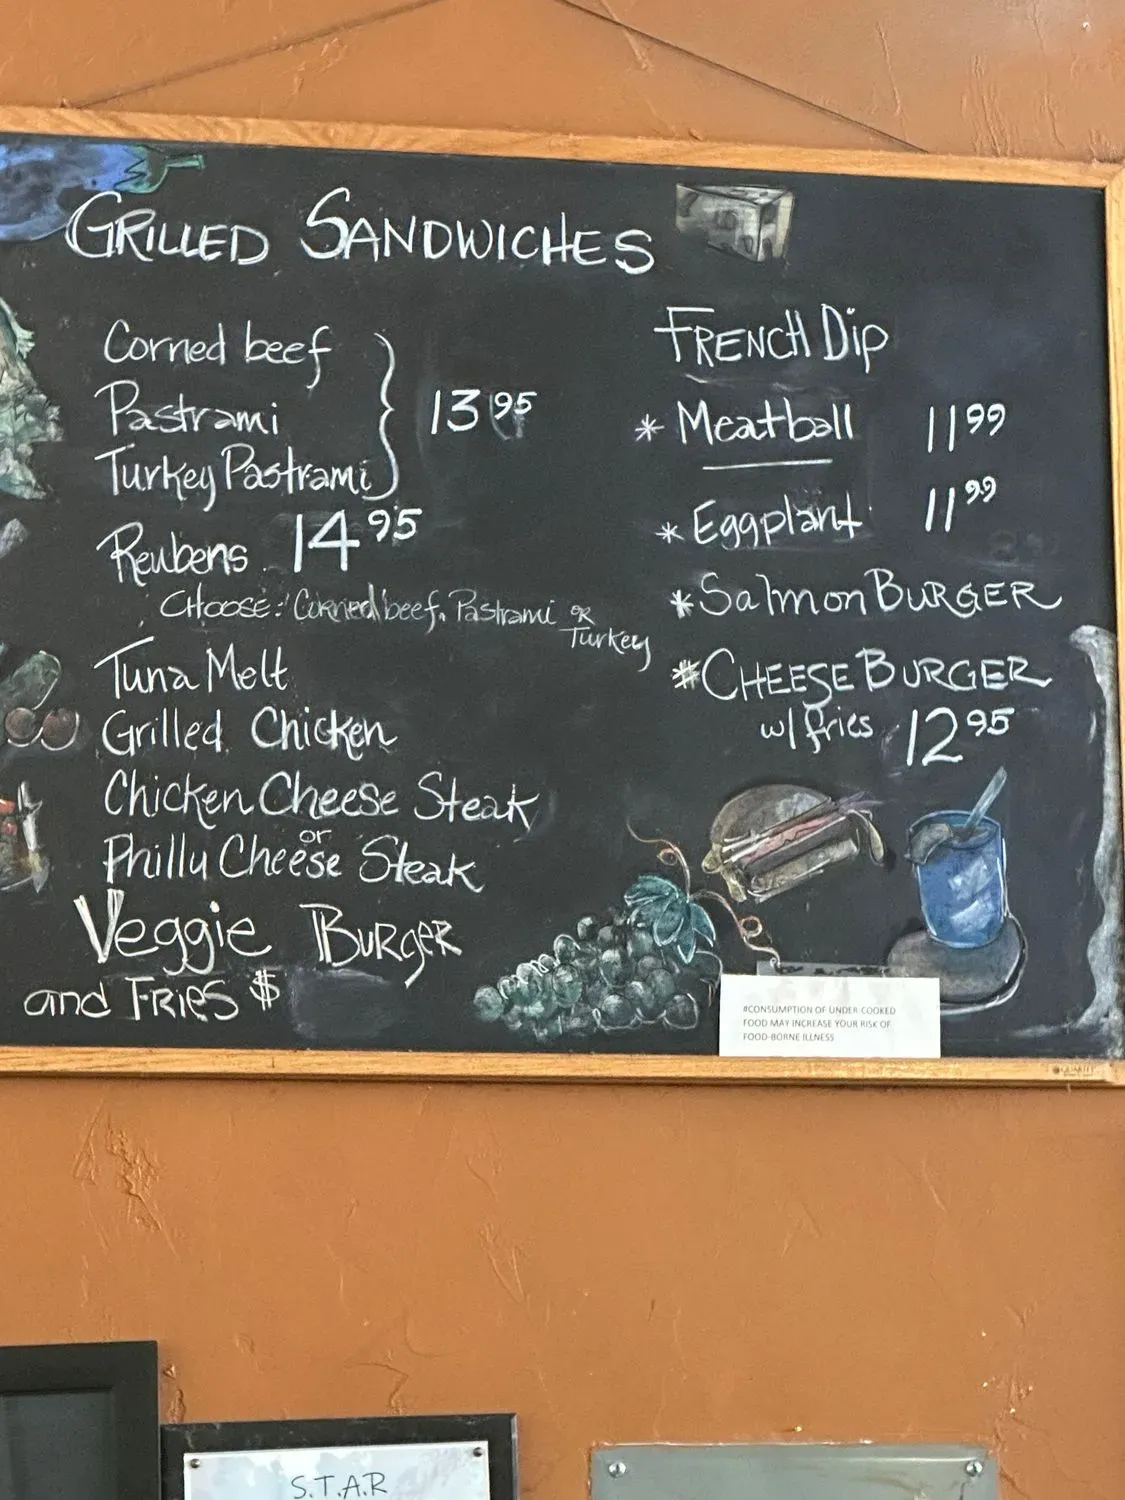 GRILLED SANDWICHES
Corned beef
Pastrami
Turkey Pastrami
13 95
Reubens 14 95
CHOOSE: Corned beef, Pastrami OR
Turkey
Tuna Melt
Grilled Chicken
Chicken Cheese Steak
or
Philly Cheese Steak
Veggie BURGER
and FRIES $
FRENCH Dip
* Meatball 11 99
* Eggplant 11 99
* Salmon BURGER
#CHEESE BURGER
w/ fries 12 95
#CONSUMPTION OF UNDER COOKED
FOOD MAY INCREASE YOUR RISK OF
FOOD-BORNE ILLNESS
S.T.A.R